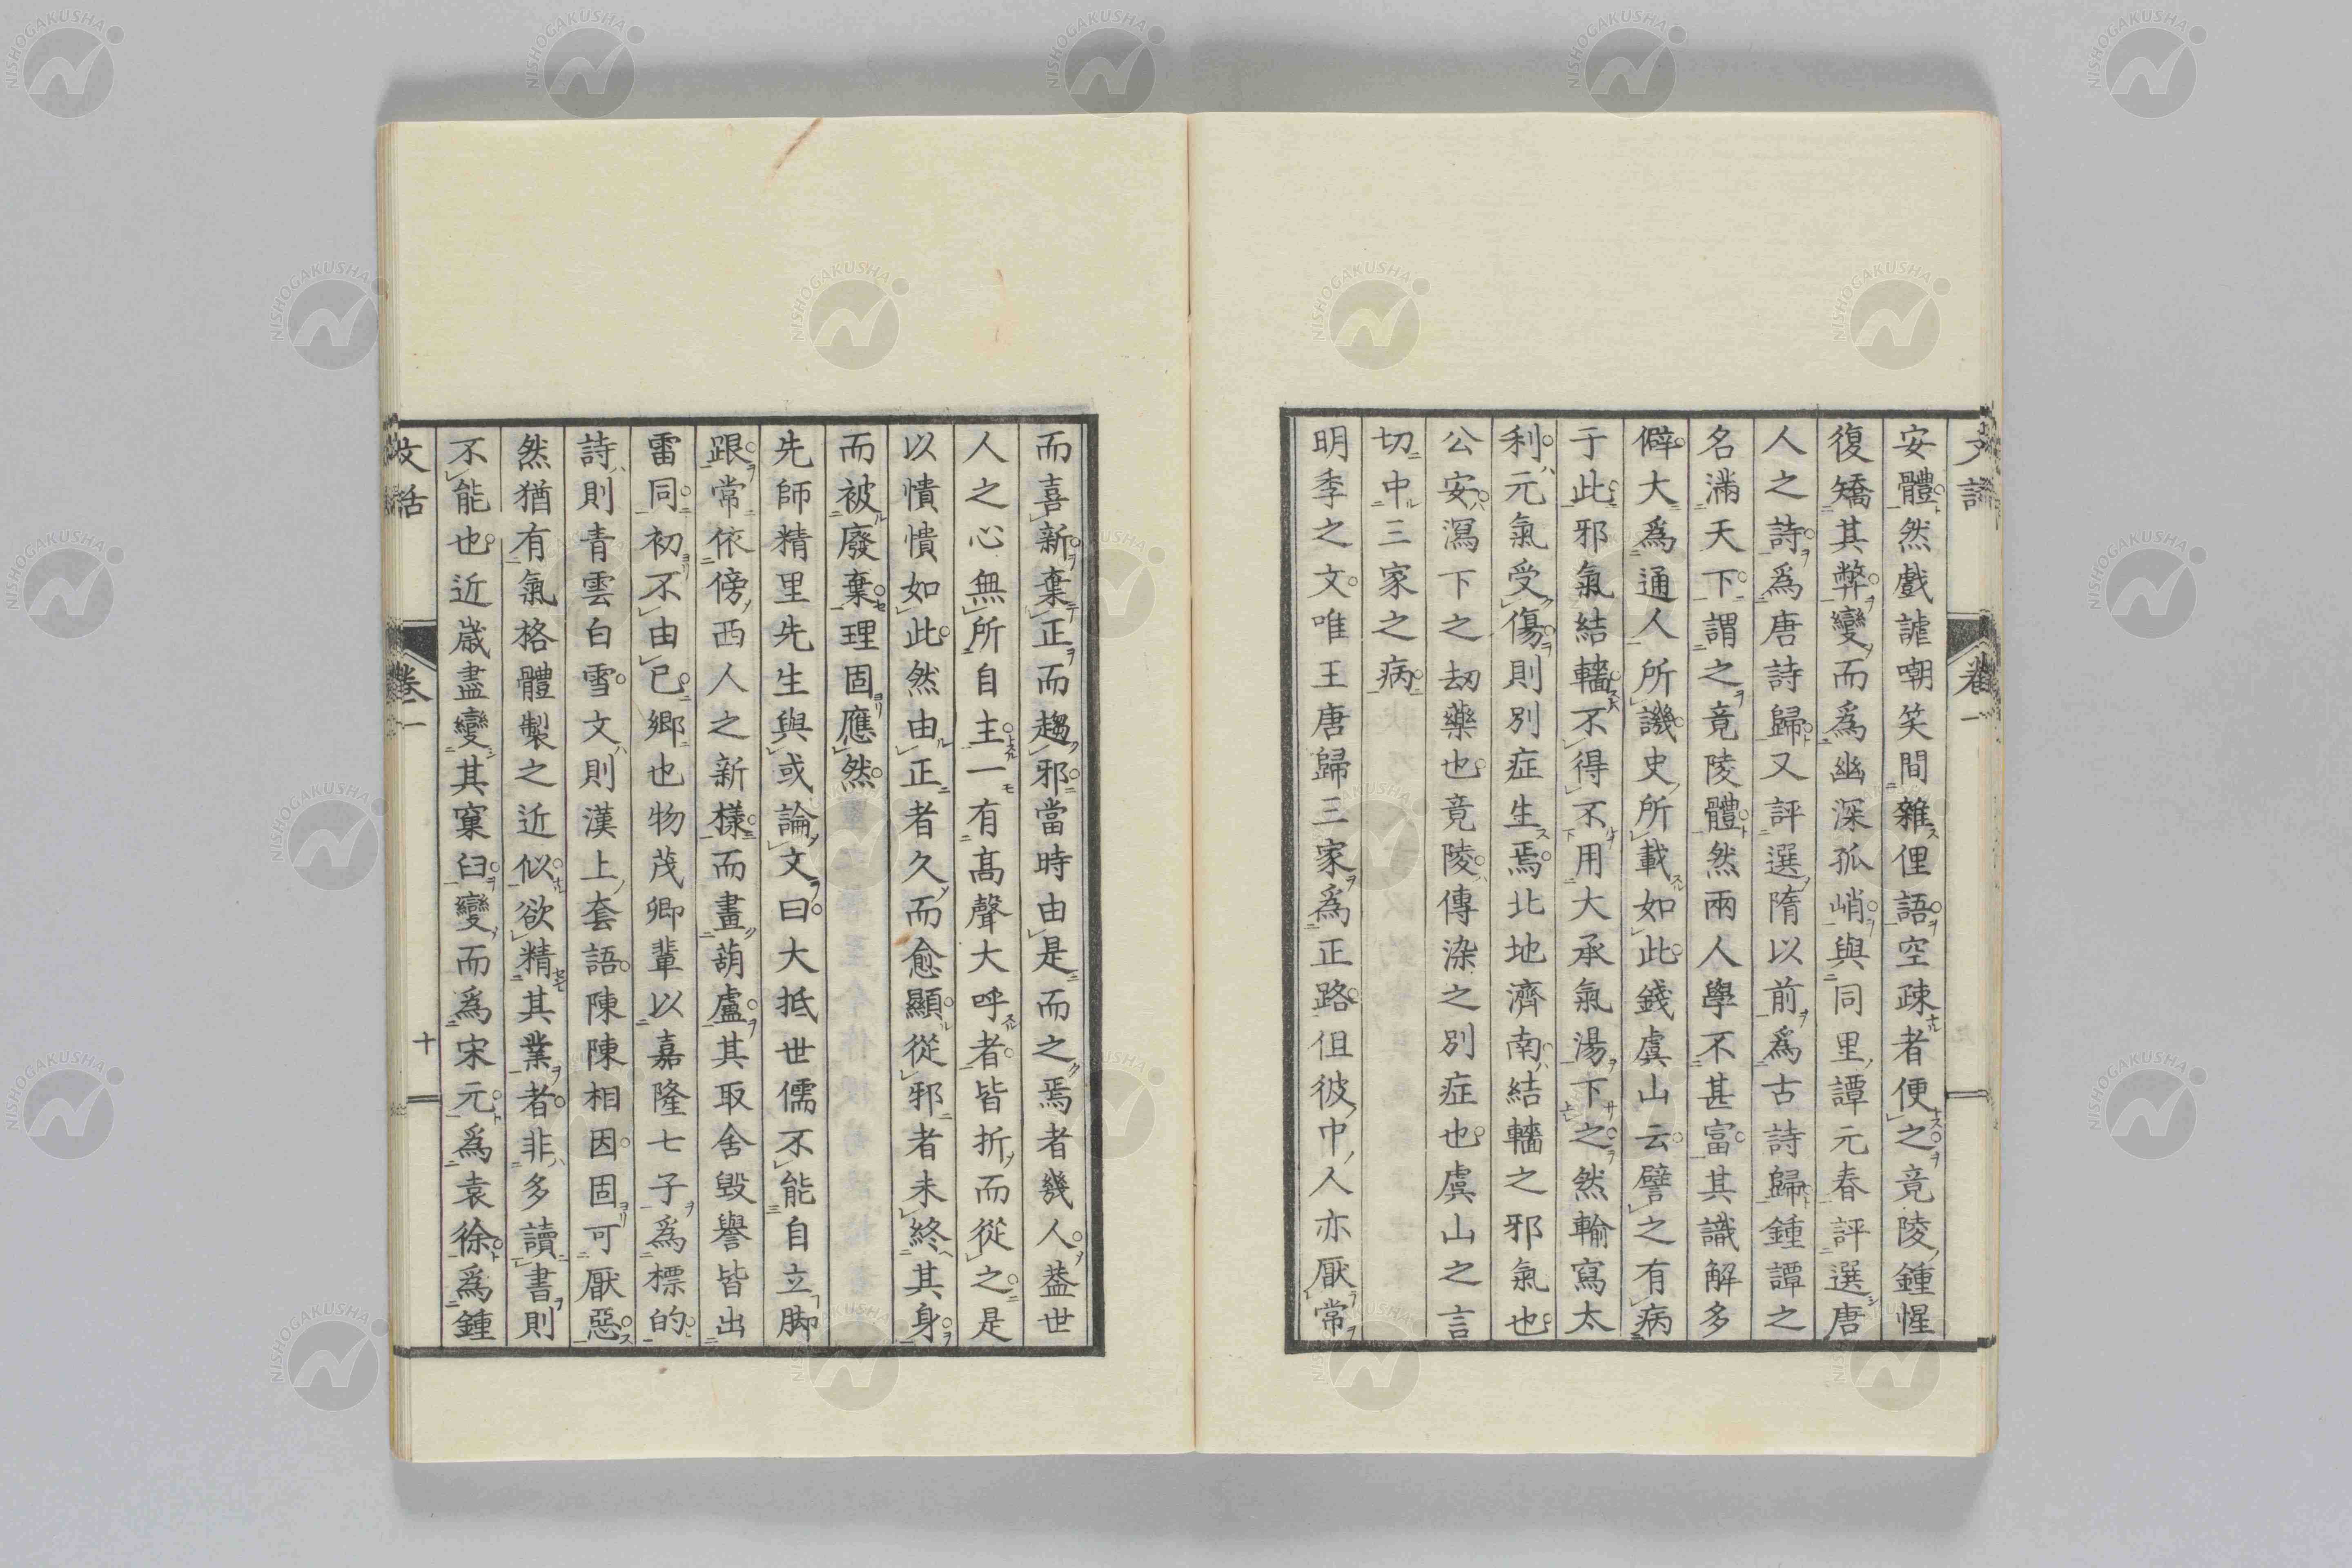 安體然戲謔嘲笑間雜俚語空疎者便之竟陵鍾惺
復矯其弊變而爲幽深孤峭與同里譚元春評選唐
人之詩爲唐詩歸又評選隋以前爲古詩歸鍾譚之
名滿天下謂之竟陵體然兩人學不甚富其識解多
僻大爲通人所譏史所載如此錢虞山云譬之有病
于此邪氣結轖不得不用大承氣湯下之然輸寫太
利元氣受傷則別症生焉北地濟南結轖之邪氣也
公安瀉下之劫藥也竟陵傳染之別症也虞山之言
切中三家之病
明季之文唯王唐歸三家爲正路但彼中人亦厭常
而喜新棄正而趨邪當時由是而之焉者幾人葢世
人之心無所自主一有髙聲大呼者皆折而從之是
以憒憒如此然由正者久而愈顯從邪者未終其身
而被廢棄理固應然
先師精里先生與或論文曰大抵世儒不能自立脚
跟常依傍西人之新樣而畫葫盧其取舍毀譽皆出
雷同初不由己鄉也物茂卿輩以嘉隆七子爲標的
詩則青雲白雪文則漢上套語陳陳相因固可厭惡
然猶有氣格體製之近似欲精其業者非多讀書則
不能也近歲盡變其窠臼變而爲宋元爲袁徐爲鍾
文話
卷一
十
NISHOGAKUSHA